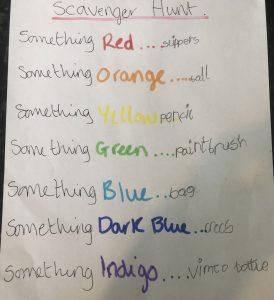 Scavenger Hunt.
Something Red....slippers
Something Orange.....ball
Something Yellow pencil
Something Green....paintbrush
Something Blue...bag
Something Dark Blue...crocs
Something Indigo....vimto bottle